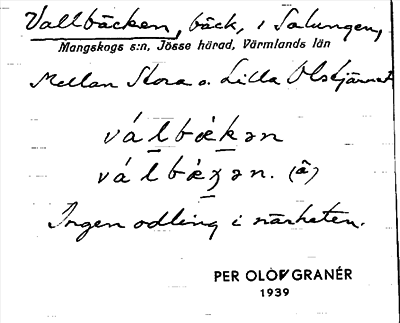 Vallbäcken, bäck, i Salungen,
Mangskogs s:n, Jösse härad, Värmlands län
Mellan Stora o. Lilla Olstjärnet
válbækən
válbæʒən. (â)
Ingen odling i närheten.
PER OLOF GRANÉR
1939